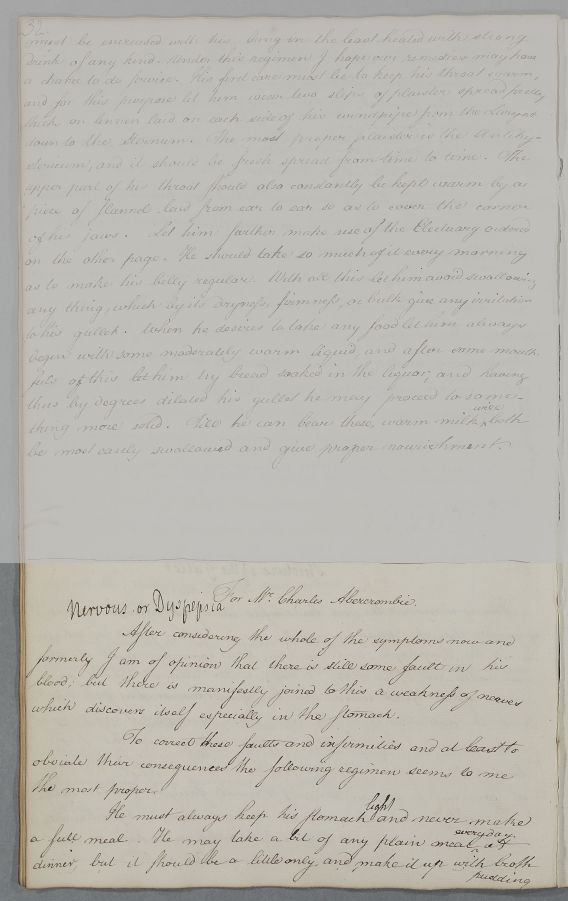 32
must be encreased with his being in the least heated with strong
drink of any kind. Under this regimen I hope our remedies may have
a chance to do service. His first care must be to keep his throat warm,
and for this purpose let him wear two slips of plaister spread pretty
thick on linnen laid on each side of his windpipe from the Larynx
down to the Sternum. The most proper plaister is the Antihy-
stericum, and it should be fresh spread from time to time. The
upper part of his throat should also constantly be kept warm by a
piece of flannel laid from ear to ear so as to cover the corner
of his jaws. Let him farther make use of the Electuary ordered
on the other page. He should take so much of it every morning
as to make his belly regular. With all this let him avoid swallowing
any thing, which by its dryness, firmness, or bulk give any irritation
to his gullet. When he desires to take any food let him always
begin with some moderately warm liquid, and after some mouth-
fuls of this let him try bread soaked in the liquor, and having
thus by degrees dilated his gullet he may proceed to some-
thing more solid. Till he can bear these, warm milk will both
be most easily swallowed and give proper nourishment.
Nervous or Dyspepsia
For Mr. Charles Abercrombie.
After considering the whole of the symptoms now and
formerly I am of opinion that there is still some fault in his
blood; but there is manifestly joined to this a weakness of nerves
which discovers itself especially in the stomach.
To correct these faults and infirmities and at least to
obviate their consequences the following regimen seems to me
the most proper.
He must always keep his stomach light and never make
a full meal. He may take a bit of any plain meat every day at
dinner, but it should be a little only, and make it up with broth
pudding